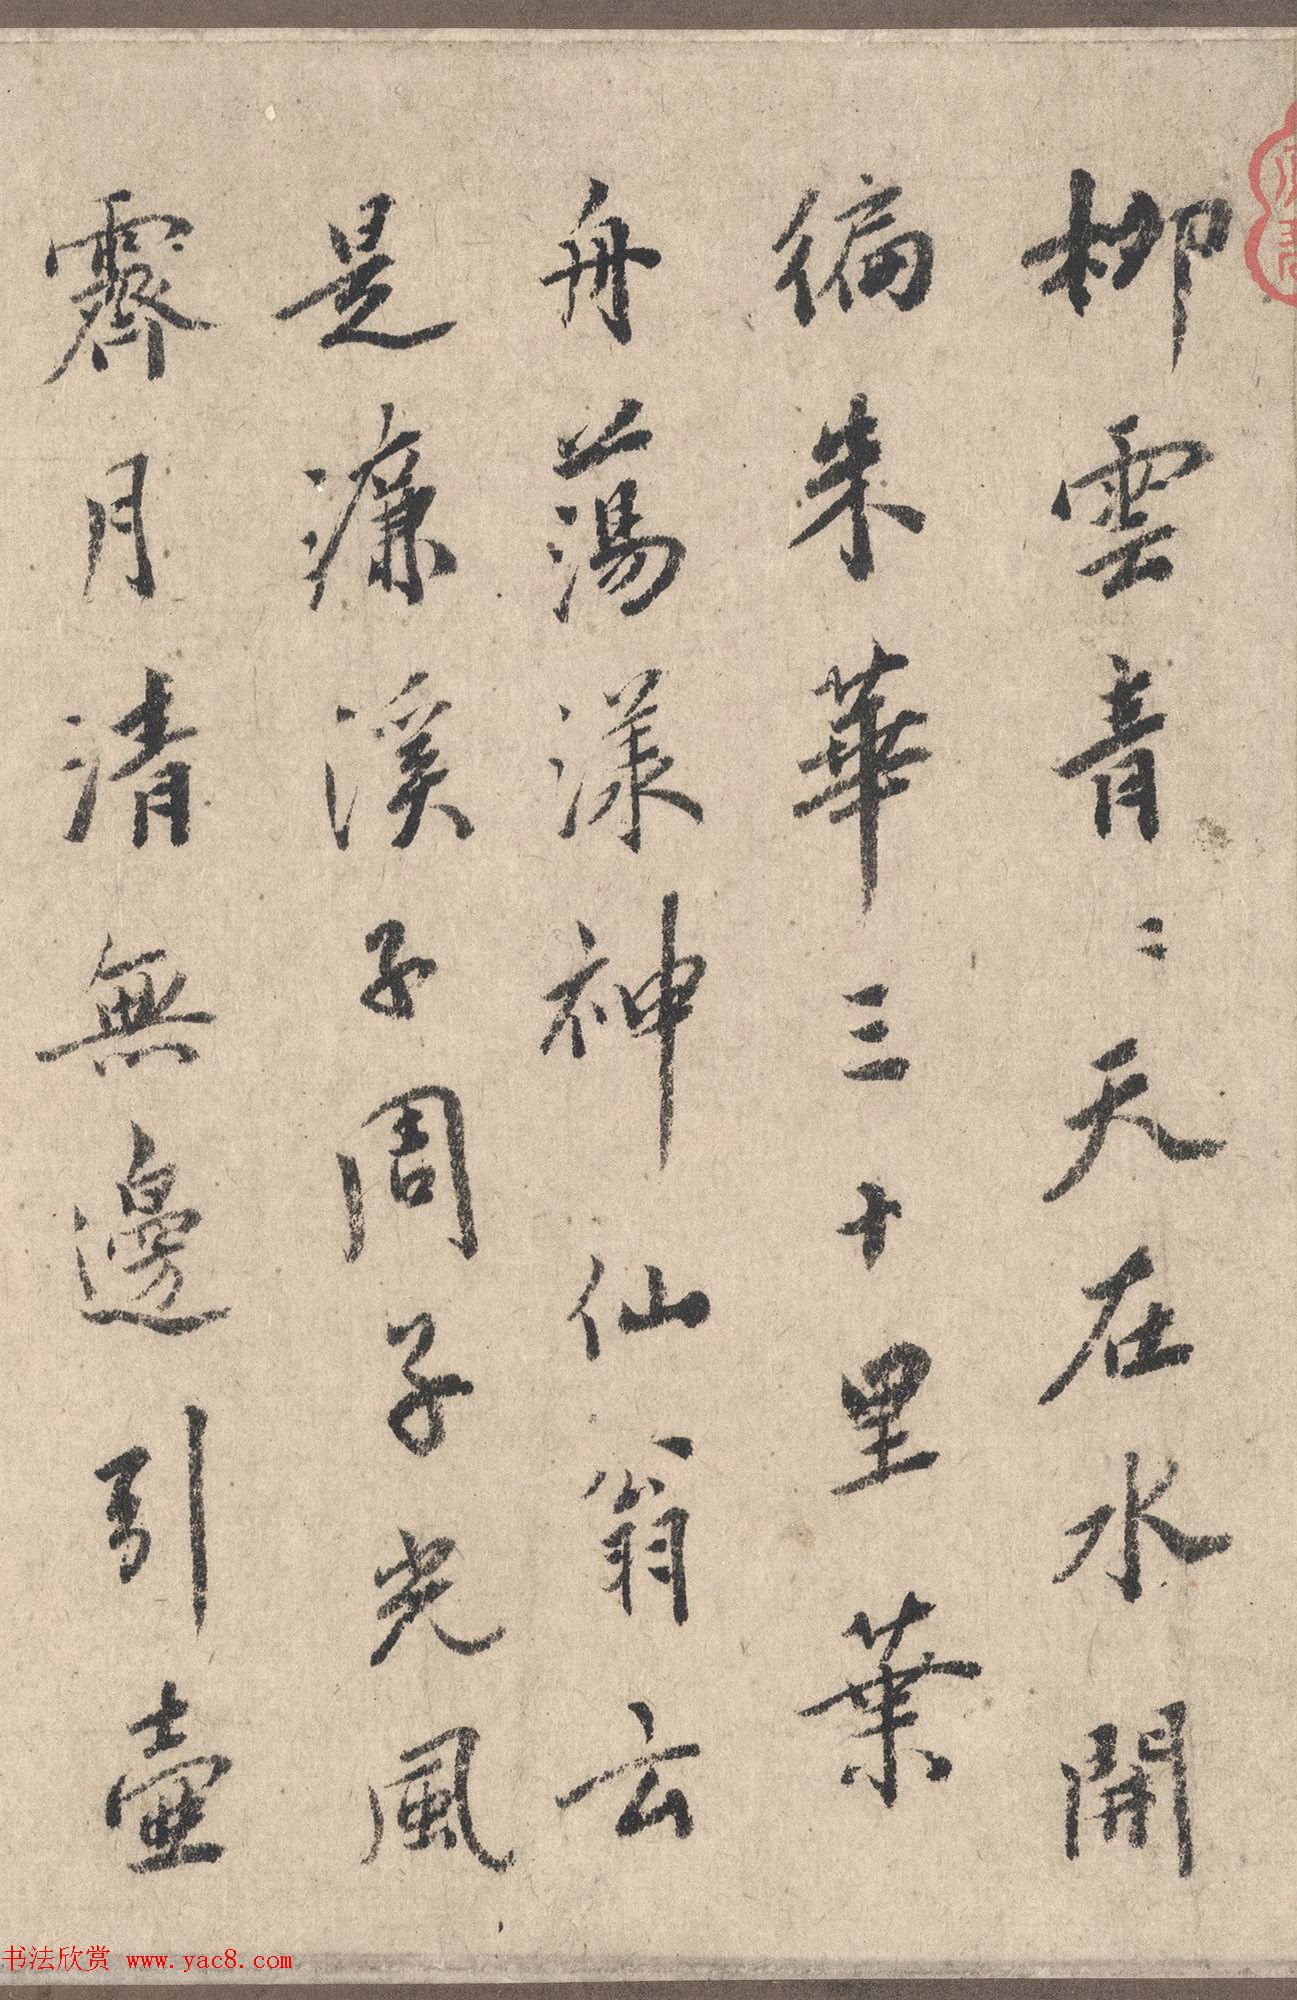 柳雲青〻天在水開
徧朱華三十里葉
舟蕩漾神仙翁云
是濂溪子周子光風
霽月清無邊引壺
书法欣赏 www.yac8.com